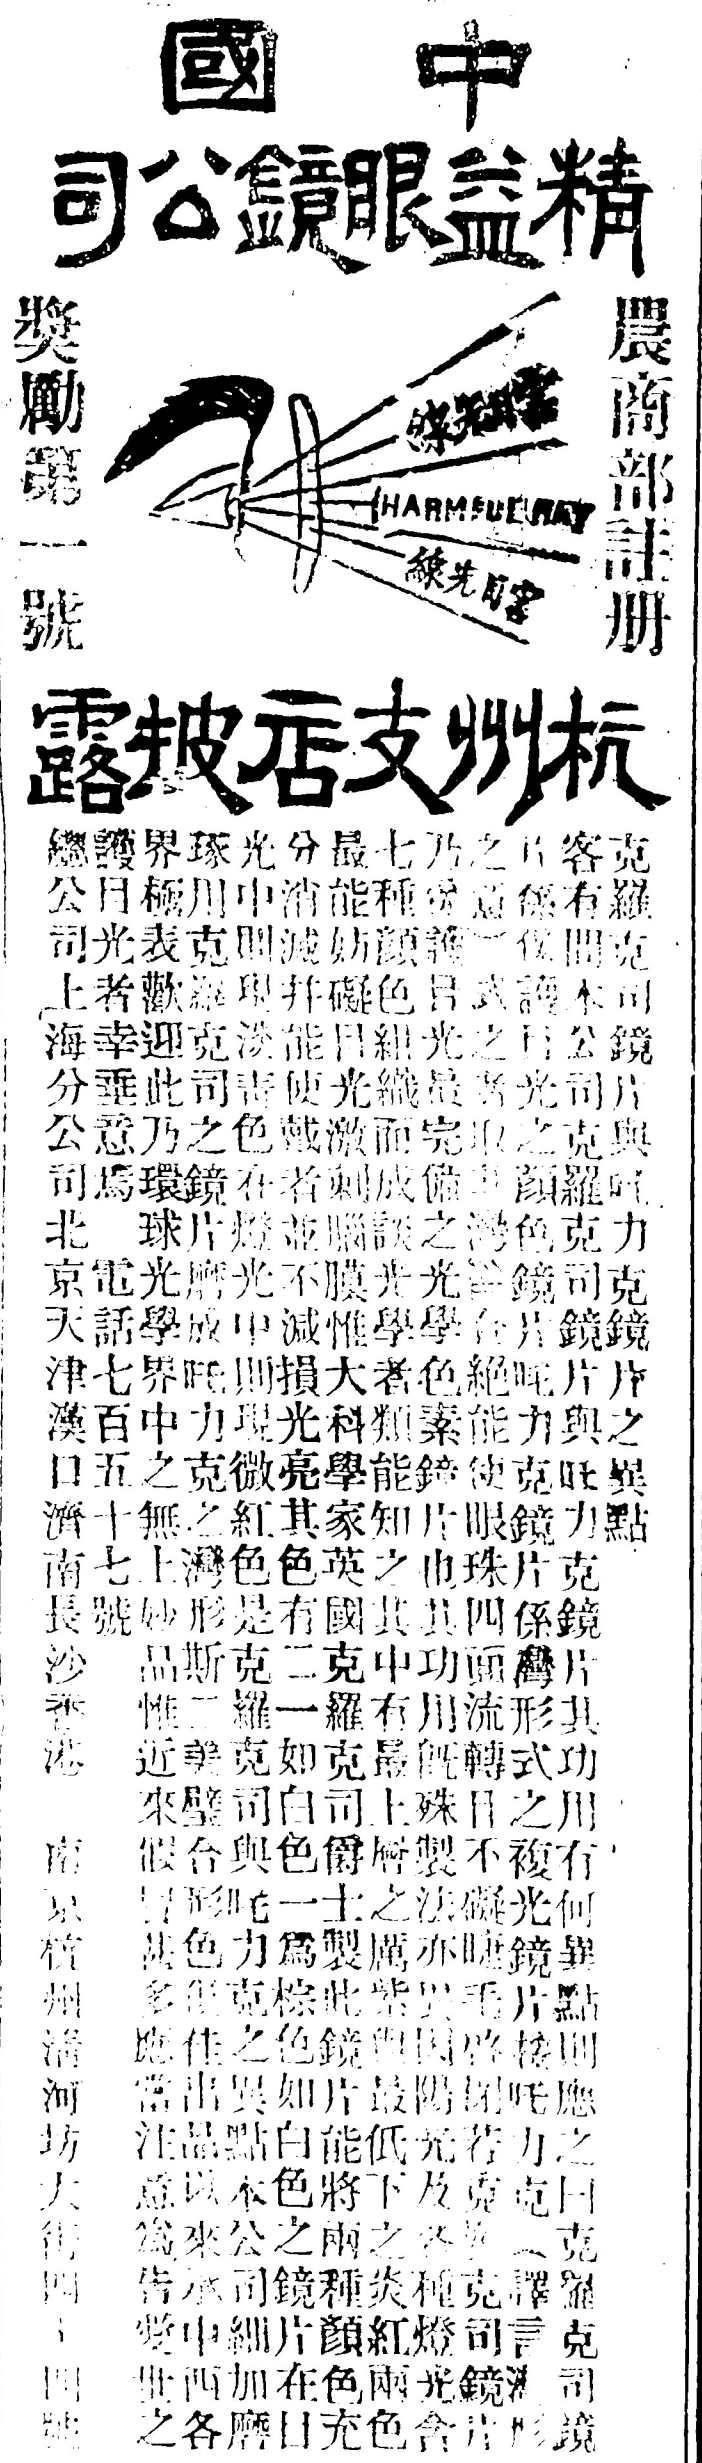 中國
精益眼鏡公司
農商部註册
獎勵第一號
害目光線
HARMFUL RAY
害目光線
杭州支店披露
克羅克司鏡片與吒力克鏡片之異點
客有問本公司克羅克司鏡片與吒力克鏡片其功用有何異點則應之曰克羅克司鏡
片係保護目光之顏色鏡片吒力克鏡片係灣形式之複光鏡片接吒力克(譯言灣形
之意 式之 絕能使眼珠四面流轉目不礙睫毛啓閉若克羅克司鏡片
乃保護目光最完備之光學色素鏡片也其功用既殊製法亦異因陽光及各種燈光含
七種顏色組織而成談光學者類能知之其中有最上層之厲紫與最低下之炎紅兩色
最能妨礙目光激刺腦膜惟大科學家英國克羅克司爵士製此鏡片能將兩種顏色充
分消滅并能使戴者並不減損光亮其色有二一如白色一爲棕色如白色之鏡片在日
光中則現淡靑色在燈光中則現微紅色是克羅克司與吒力克之異點本公司細加磨
琢用克羅克司之鏡片磨成吒力克之灣形斯二美璧合形色俱佳出品以來承中西各
界極表歡迎此乃環球光學界中之無上妙品惟近來假冒甚多應當注意爲告愛世之
護目光者幸垂意焉 電話七百五十七號
總公司上海分公司北京天津漢口濟南長沙香港 南京杭州淸河坊大街四十四號